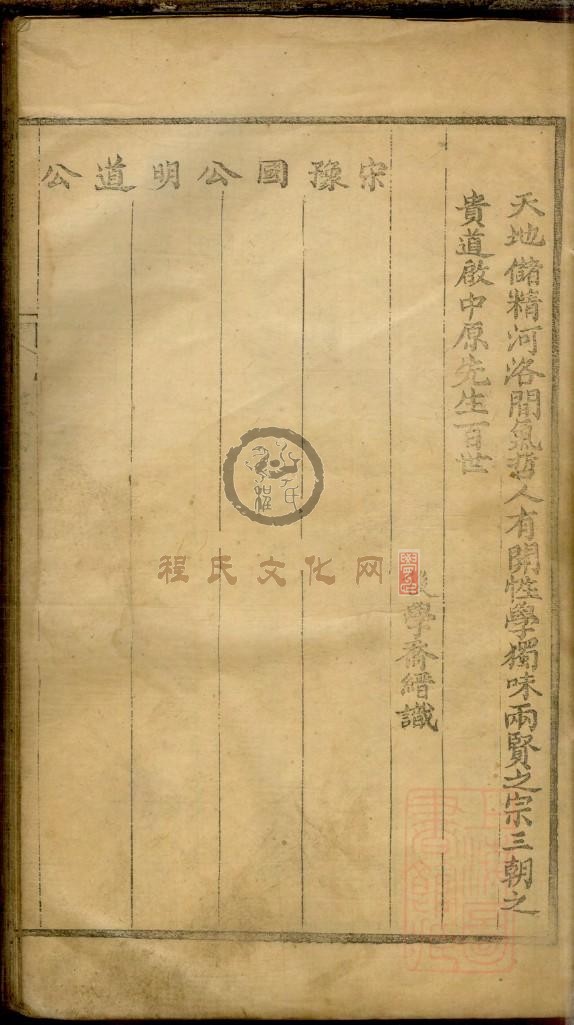 天地儲精河洛間氣哲人有開性學獨味兩賢之宗三朝之
貴道啟中原先生百世
學喬縉識
宋豫國公明道公
程氏文化网